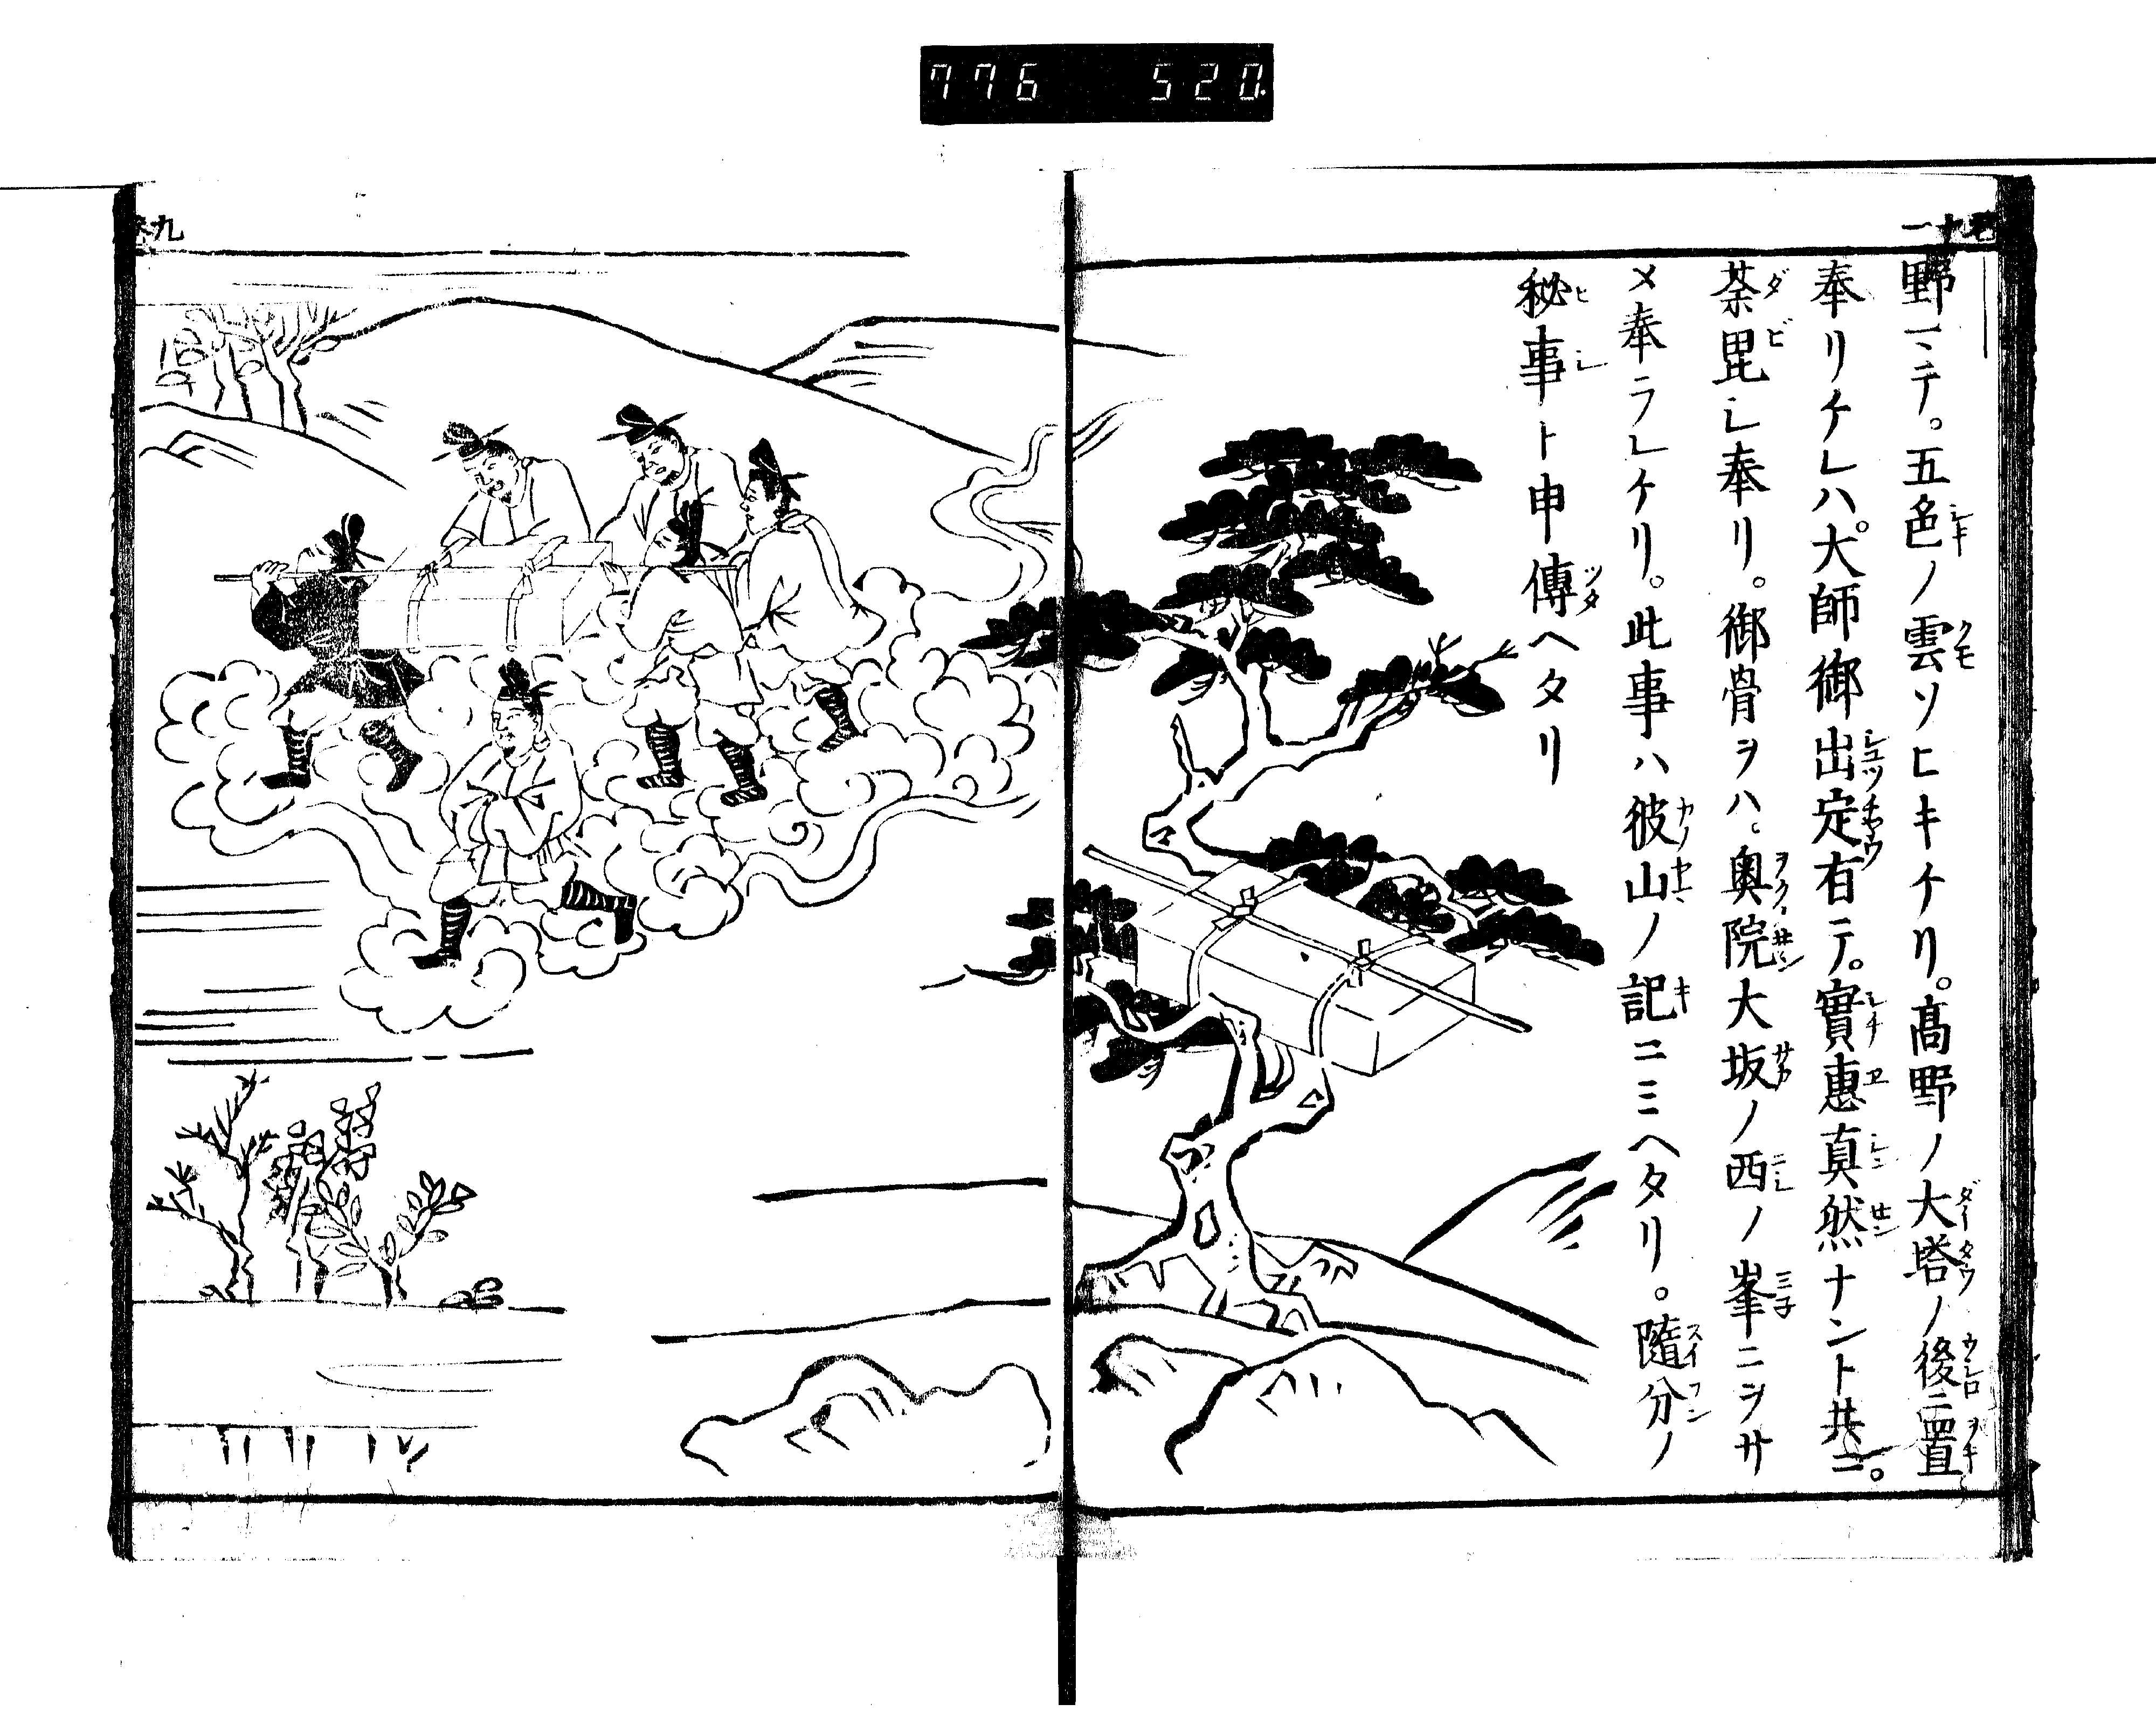 776 520
野ニテ。五色ノ雲ソヒキケリ。髙野ノ大塔ノ後ニ置
奉リケレハ。大師御出定有テ。實惠真然ナント共ニ。
荼毘シ奉リ。御骨ヲハ。奥院大坂ノ西ノ峯ニヲサ
メ奉ラレケリ。此事ハ彼山ノ記ニミヘタリ。隨分ノ
秘事ト申傳ヘタリ
九